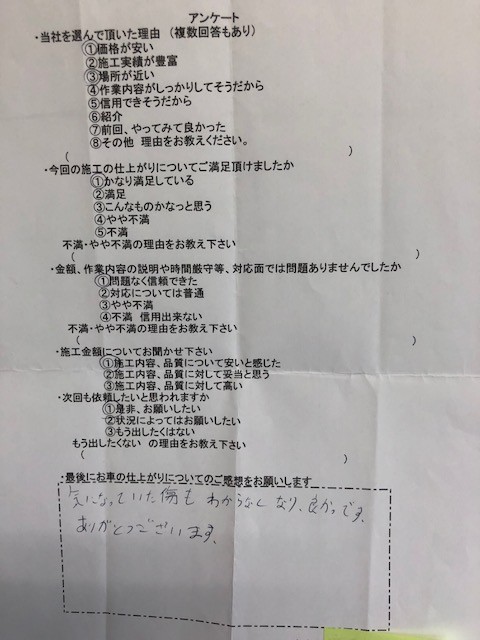 アンケート
・当社を選んで頂いた理由 (複数回答もあり)
①価格が安い
②施工実績が豊富
③場所が近い
④作業内容がしっかりしてそうだから
⑤信用できそうだから
⑥紹介
⑦前回、やってみて良かった
⑧その他 理由をお教えください。
( )
・今回の施工の仕上がりについてご満足頂けましたか
①かなり満足している
②満足
③こんなものかなっと思う
④やや不満
⑤不満
不満・やや不満の理由をお教え下さい
( )
・金額、作業内容の説明や時間厳守等、対応面では問題ありませんでしたか
①問題なく信頼できた
②対応については普通
③やや不満
④不満 信用出来ない
不満・やや不満の理由をお教え下さい
( )
・施工金額についてお聞かせ下さい
①施工内容、品質について安いと感じた
②施工内容、品質に対して妥当と思う
③施工内容、品質に対して高い
・次回も依頼したいと思われますか
①是非、お願いしたい
②状況によってはお願いしたい
③もう出したくはない
もう出したくない の理由をお教え下さい
( )
・最後にお車の仕上がりについてのご感想をお願いします
気になっていた傷も わからなくなり、良かったです。
ありがとうございます。